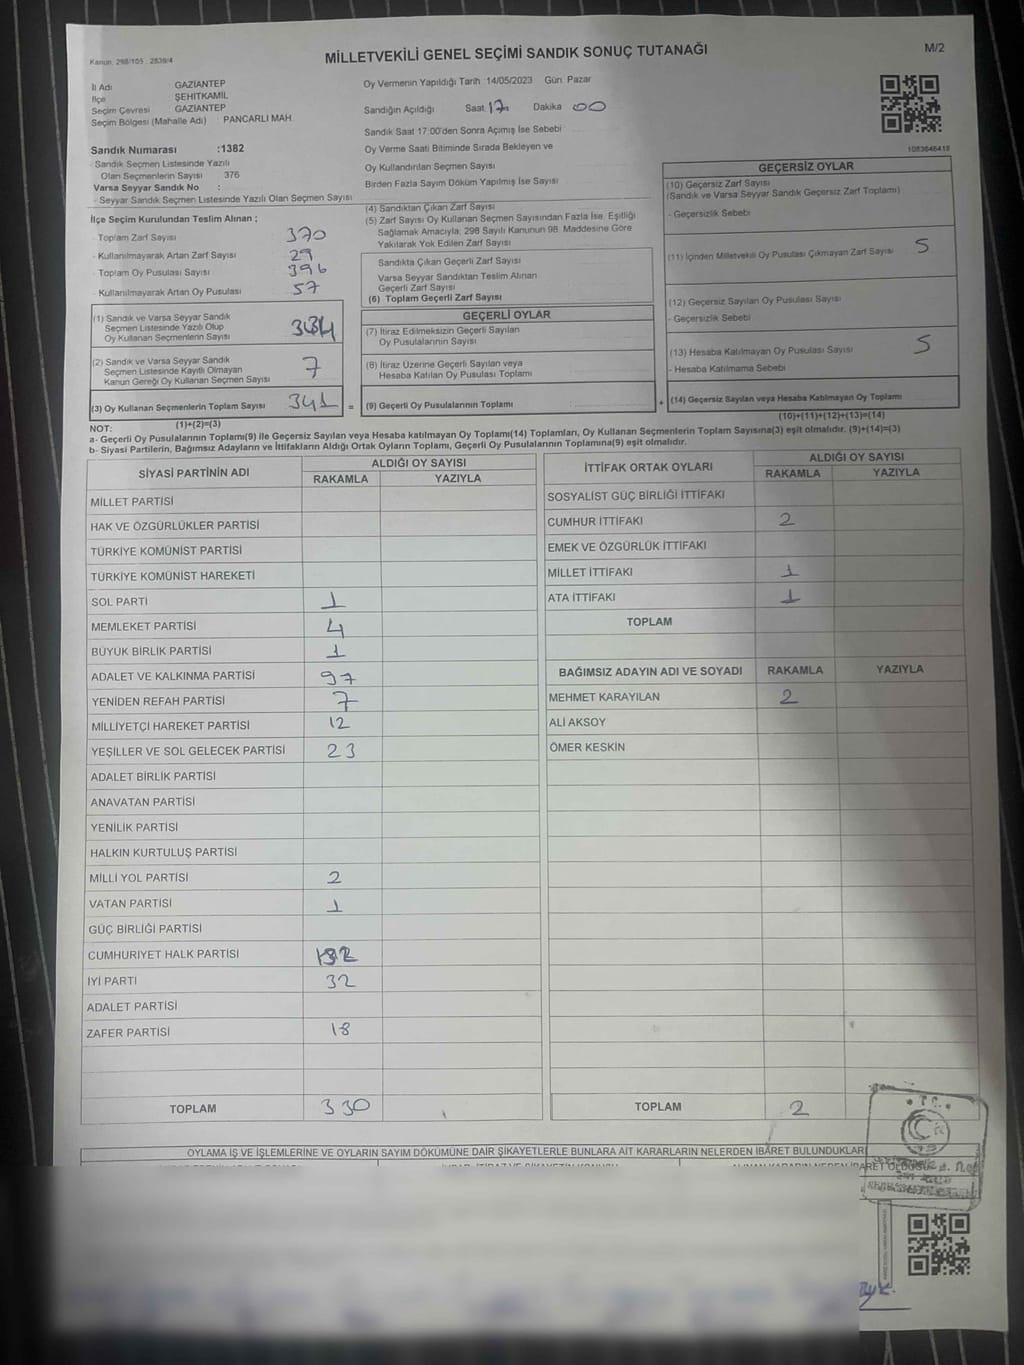 Kanun: 298/105 , 2839/4
MİLLETVEKİLİ GENEL SEÇİMİ SANDIK SONUÇ TUTANAĞI
M/2
İl Adı GAZİANTEP
İlçe ŞEHİTKAMİL
Seçim Çevresi GAZİANTEP
Seçim Bölgesi (Mahalle Adı) : PANCARLI MAH.
Sandık Numarası :1382
- Sandık Seçmen Listesinde Yazılı
Olan Seçmenlerin Sayısı 376
Varsa Seyyar Sandık No :
- Seyyar Sandık Seçmen Listesinde Yazılı Olan Seçmen Sayısı
Oy Vermenin Yapıldığı Tarih :14/05/2023 Gün: Pazar
Sandığın Açıldığı Saat 17 Dakika 00
Sandık Saat 17:00'den Sonra Açımış İse Sebebi
Oy Verme Saati Bitiminde Sırada Bekleyen ve
Oy Kullandırılan Seçmen Sayısı
Birden Fazla Sayım Döküm Yapılmış İse Sayısı
1083646413
İlçe Seçim Kurulundan Teslim Alınan ;
- Toplam Zarf Sayısı 370
- Kullanılmayarak Artan Zarf Sayısı 29
- Toplam Oy Pusulası Sayısı 396
- Kullanılmayarak Artan Oy Pusulası 57
(1) Sandık ve Varsa Seyyar Sandık
Seçmen Listesinde Yazılı Olup
Oy Kullanan Seçmenlerin Sayısı 334
(2) Sandık ve Varsa Seyyar Sandık
Seçmen Listesinde Kayıtlı Olmayan
Kanun Gereği Oy Kullanan Seçmen Sayısı 7
(3) Oy Kullanan Seçmenlerin Toplam Sayısı 341 =
(1)+(2)=(3)
(4) Sandıktan Çıkan Zarf Sayısı
(5) Zarf Sayısı Oy Kullanan Seçmen Sayısından Fazla İse, Eşitliği
Sağlamak Amacıyla, 298 Sayılı Kanunun 98. Maddesine Göre
Yakılarak Yok Edilen Zarf Sayısı
Sandıkta Çıkan Geçerli Zarf Sayısı
Varsa Seyyar Sandıktan Teslim Alınan
Geçerli Zarf Sayısı
(6) Toplam Geçerli Zarf Sayısı
GEÇERLİ OYLAR
(7) İtiraz Edilmeksizin Geçerli Sayılan
Oy Pusulalarının Sayısı
(8) İtiraz Üzerine Geçerli Sayılan veya
Hesaba Katılan Oy Pusulası Toplamı
(9) Geçerli Oy Pusulalarının Toplamı +
GEÇERSİZ OYLAR
(10) Geçersiz Zarf Sayısı
(Sandık ve Varsa Seyyar Sandık Geçersiz Zarf Toplamı)
- Geçersizlik Sebebi
(11) İçinden Milletvekili Oy Pusulası Çıkmayan Zarf Sayısı 5
(12) Geçersiz Sayılan Oy Pusulası Sayısı
- Geçersizlik Sebebi
(13) Hesaba Katılmayan Oy Pusulası Sayısı 5
- Hesaba Katılmama Sebebi
(14) Geçersiz Sayılan veya Hesaba Katılmayan Oy Toplamı
(10)+(11)+(12)+(13)=(14)
NOT:
a- Geçerli Oy Pusulalarının Toplamı(9) ile Geçersiz Sayılan veya Hesaba katılmayan Oy Toplamı(14) Toplamları, Oy Kullanan Seçmenlerin Toplam Sayısına(3) eşit olmalıdır. (9)+(14)=(3)
b- Siyasi Partilerin, Bağımsız Adayların ve İttifakların Aldığı Ortak Oyların Toplamı, Geçerli Oy Pusulalarının Toplamına(9) eşit olmalıdır.
SİYASİ PARTİNİN ADI ALDIĞI OY SAYISI
RAKAMLA YAZIYLA
MİLLET PARTİSİ
HAK VE ÖZGÜRLÜKLER PARTİSİ
TÜRKİYE KOMÜNİST PARTİSİ
TÜRKİYE KOMÜNİST HAREKETİ
SOL PARTİ 1
MEMLEKET PARTİSİ 4
BÜYÜK BİRLİK PARTİSİ 1
ADALET VE KALKINMA PARTİSİ 97
YENİDEN REFAH PARTİSİ 7
MİLLİYETÇİ HAREKET PARTİSİ 12
YEŞİLLER VE SOL GELECEK PARTİSİ 23
ADALET BİRLİK PARTİSİ
ANAVATAN PARTİSİ
YENİLİK PARTİSİ
HALKIN KURTULUŞ PARTİSİ
MİLLİ YOL PARTİSİ 2
VATAN PARTİSİ 1
GÜÇ BİRLİĞİ PARTİSİ
CUMHURİYET HALK PARTİSİ 132
İYİ PARTİ 32
ADALET PARTİSİ
ZAFER PARTİSİ 18
TOPLAM 330
İTTİFAK ORTAK OYLARI ALDIĞI OY SAYISI
RAKAMLA YAZIYLA
SOSYALİST GÜÇ BİRLİĞİ İTTİFAKI
CUMHUR İTTİFAKI 2
EMEK VE ÖZGÜRLÜK İTTİFAKI
MİLLET İTTİFAKI 1
ATA İTTİFAKI 1
TOPLAM
BAĞIMSIZ ADAYIN ADI VE SOYADI RAKAMLA YAZIYLA
MEHMET KARAYILAN 2
ALİ AKSOY
ÖMER KESKİN
TOPLAM 2
T.C.
OYLAMA İŞ VE İŞLEMLERİNE VE OYLARIN SAYIM DÖKÜMÜNE DAİR ŞİKAYETLERLE BUNLARA AİT KARARLARIN NELERDEN İBARET BULUNDUKLARI